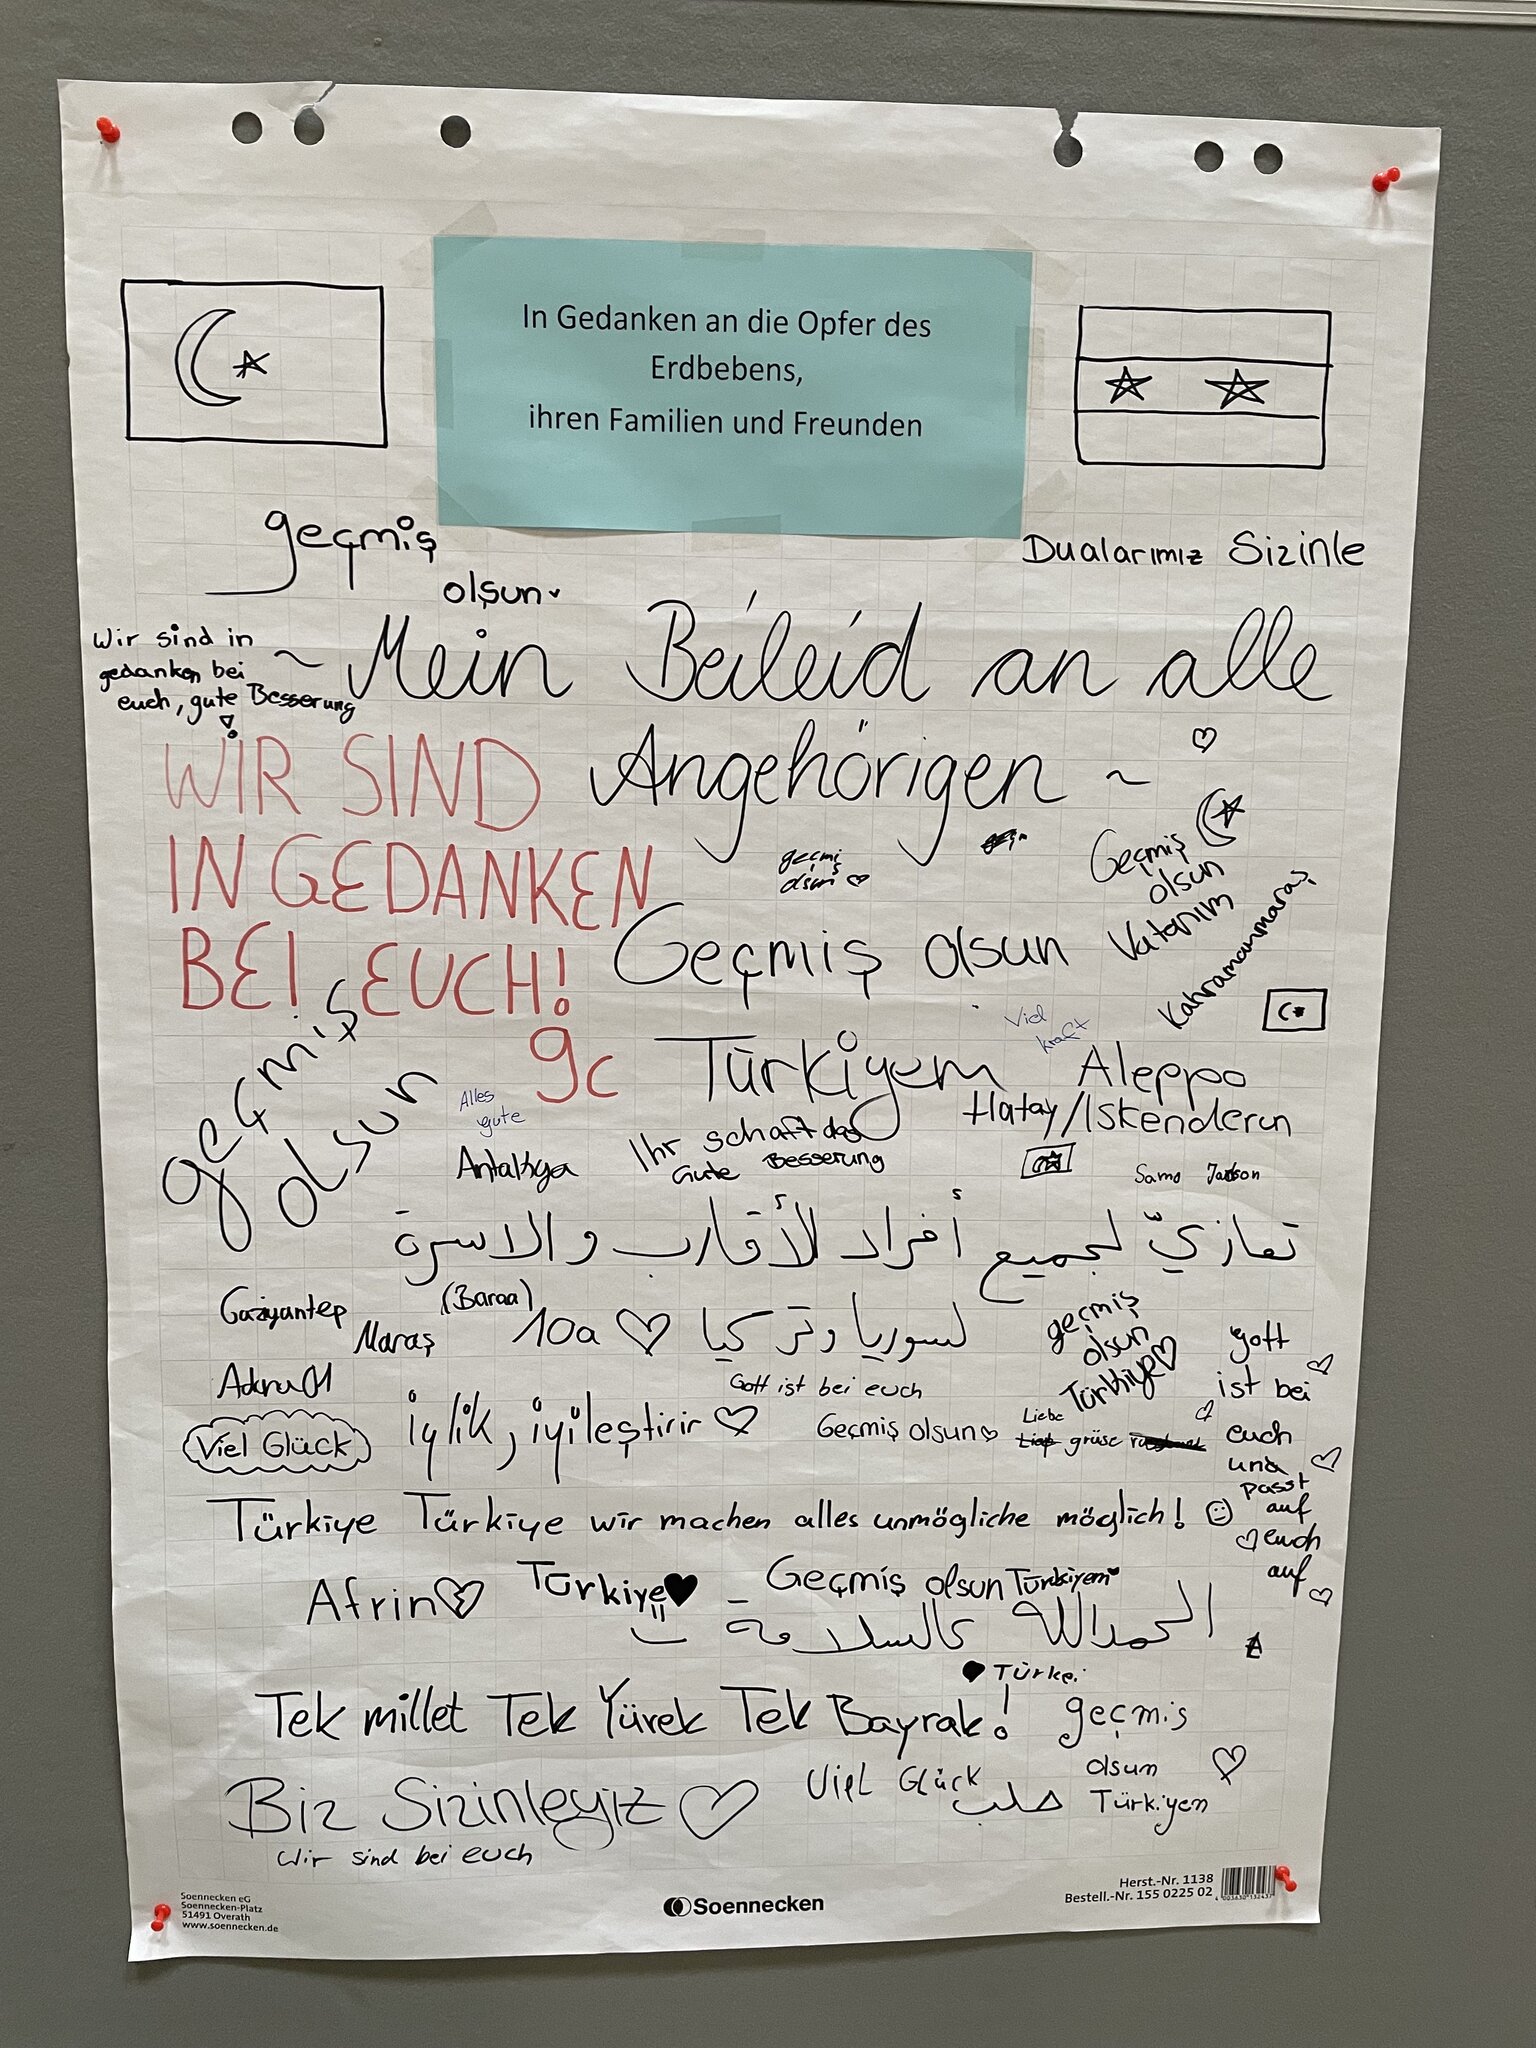 In Gedanken an die Opfer des
Erdbebens,
ihren Familien und Freunden
geçmiş
olsun
Dualarımız Sizinle
Wir sind in
gedanken bei
euch, gute Besserung
~ Mein Beileid an alle
Angehörigen ~
WIR SIND
IN GEDANKEN
BEI EUCH!
gc
geçmi
ş
olsun
Geçmiş
olsun
Vatanım
Kahramanmaraş
Geçmiş olsun
Türkiyem
Viel
kraft
Aleppo
Hatay/Iskenderun
geçmiş
olsun
Alles
gute
Antakya
Ihr schaft das
Gute Besserung
Samo
تعازيّ لجميع أفراد الأقارب والاسرة
لسوريا وتركيا
(Baraa)
10a
Gaziyantep
Maraş
Adna 01
geçmiş
olsun
Türkiye
Gott
ist bei
euch
und
passt
auf
euch
auf
Gott ist bei euch
Viel Glück
iylik, iyileştirir
Geçmiş olsun
Liebe
grüse
Türkiye Türkiye wir machen alles unmögliche möglich!
Afrin
Türkiye
Geçmiş olsun Türkiyem
الحمدالله عالسلامة
Türkei
Tek millet Tek Yürek Tek Bayrak!
geçmis
olsun
Türkiyem
Biz Sizinleyiz
Wir sind bei euch
Viel Glück
حلب
Soennecken eG
Soennecken-Platz
51491 Overath
www.soennecken.de
Soennecken
Herst.-Nr. 1138
Bestell.-Nr. 155 0225 02